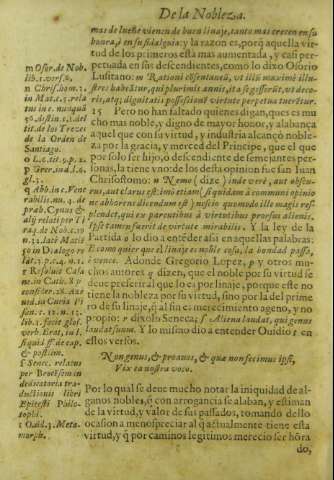 De la Nobleza.
mas de lueñe vienen de buen linaje, tanto mas crecen en su
honra, è en su fidalguia: y la razon es, porq̃ aquella vir-
tud de los primeros está mas aumentada, y casi per-
petuada en sus descendientes, como lo dixo Osorio
Lusitano: m Rationi cõsentaneũ, ut illũ maximè illu-
stres habeãtur, qui plurimis annis, ita se gesserũt, ut deco-
ris, atq; dignitatis possessionẽ virtute perpetua tuerẽtur.
15 Pero no han faltado quienes digan, que es mu
cho mas noble, y digno de mayor honor, y alabança
aquel que con su virtud, y industria alcançò noble-
za por la gracia, y merced del Principe, que el que
por solo ser hijo, ò descendiente de semejantes per-
sonas, la tiene y no: de los desta opinion fue san Iuan
Chrisostomo: n Nemo ( dize ) inde vere, aut obscu-
rus, aut clarus est: imò etiam, si quidam à communi opinio
ne abhorrens dicendum est, nescio quomodo ille magis res-
plendet, qui ex parentibus à virtutibus prorsus alienis,
ipse tamen fuerit de virtute mirabilis. Y la ley de la
Partida o lo dio à entẽder assi en aquellas palabras:
E como quier que el linaje es noble cosa, la bondad passa,
è vence. Adonde Gregorio Lopez, p y otros mu-
chos autores q dizen, que el noble por su virtud se
deue preferir al que lo es por linaje, porque este no
tiene la nobleza por su virtud, sino por la del prime
ro de su linaje, q̃ al fin es merecimiento ageno, y no
propio: r dixolo Seneca; s Aliena laudat, qui genus
laudat suum. Y lo mismo dio à entender Ouidio t en
estos versos.
Non genus, & proauos, & quæ non fecimus ipsi,
Vix ea nostra voco.
Por lo qual se deue mucho notar la iniquidad de al-
ganos nobles, q̃ con arrogancia se alaban, y estiman
de la virtud, y valor de sus passados, tomando dello
ocasion à menospreciar al q̃ actualmente tiene esta
virtud, y q̃ por caminos legitimos merecio ser hõra
do,
m Osor. de Nob.
lib. 1. vers. 2.
n Chrisost. hom. 3.
in Mat. c. 3. rela
tus in c. nunquid
50. distin. c. 1. del
tit. de los Trezes
de la Orden de
Santiago.
o L. 6. tit. 9. p. 2.
p Greg. in d. l. 6.
gl. 3.
q Abb. in c. Vene
rabilis, nu. 4. de
præb. Cynus &
alij relati per Ti
raq. de Nob. c. 10
r Resolut. Cassa
s Senec. relatus
per Brocensem in
dedicatoria tra-
ductionis libri
Epitecti Philo-
sophi.
t Ouid. 3. Meta-
morph.